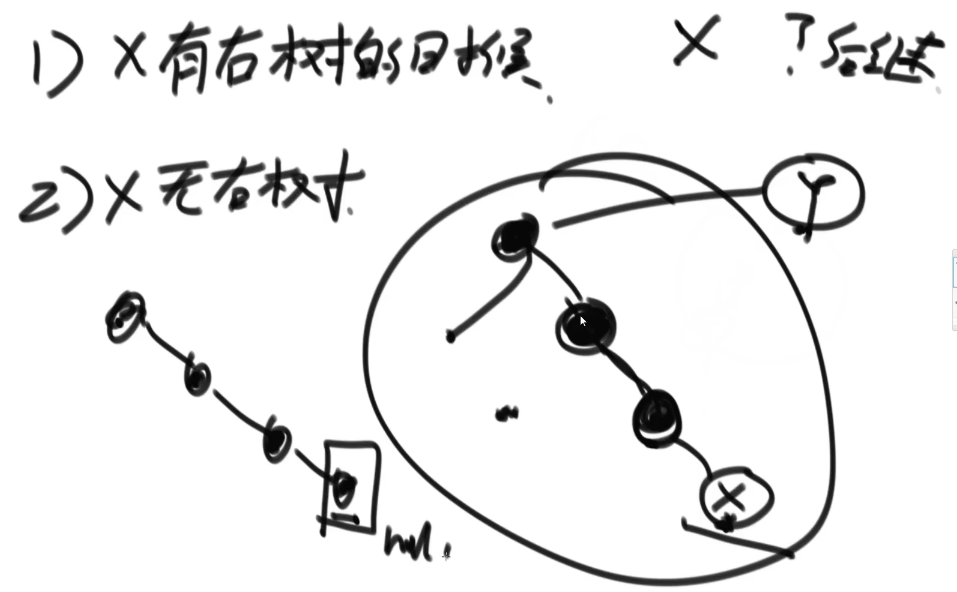 1) X 有右树的时候.
X ? 后继.
2) X 无右树.
Y
X
null.